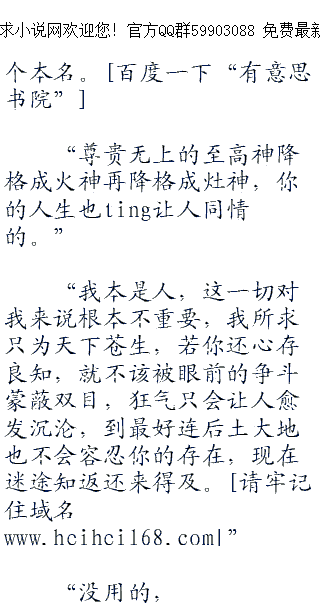 求小说网欢迎您！官方QQ群59903088 免费最新
个本名。[百度一下“有意思
书院”]
“尊贵无上的至高神降
格成火神再降格成灶神，你
的人生也ting让人同情
的。”
“我本是人，这一切对
我来说根本不重要，我所求
只为天下苍生，若你还心存
良知，就不该被眼前的争斗
蒙蔽双目，狂气只会让人愈
发沉沦，到最好连后土大地
也不会容忍你的存在，现在
迷途知返还来得及。[请牢记
住域名
www.heihei168.com|”
“没用的，